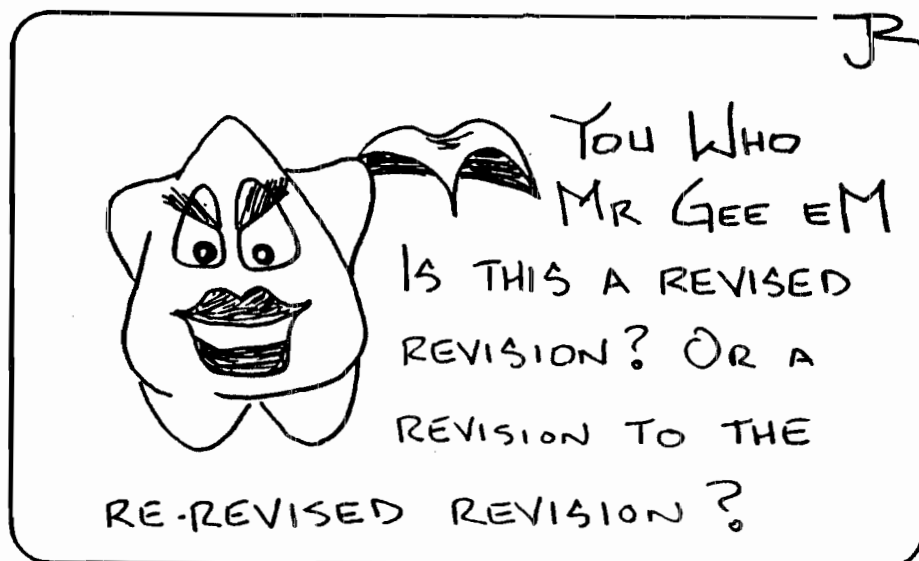 JR
YOU WHO
MR GEE EM
IS THIS A REVISED
REVISION? OR A
REVISION TO THE
RE-REVISED REVISION?